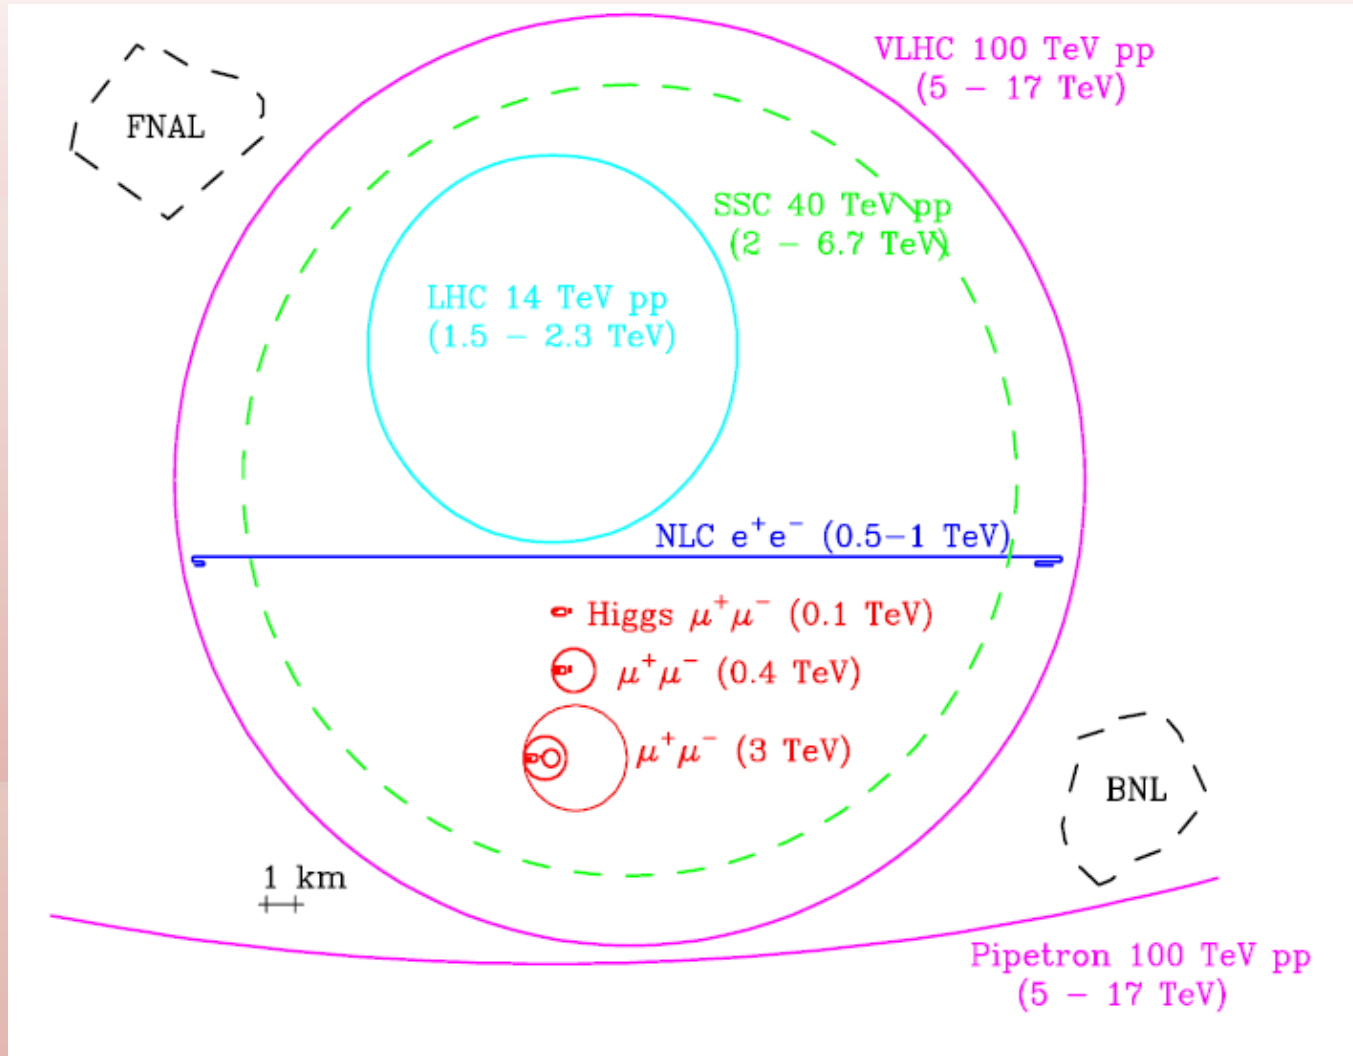 VLHC 100 TeV pp
(5 − 17 TeV)
FNAL
SSC 40 TeV pp
(2 − 6.7 TeV)
LHC 14 TeV pp
(1.5 − 2.3 TeV)
NLC e⁺e⁻ (0.5−1 TeV)
Higgs μ⁺μ⁻ (0.1 TeV)
μ⁺μ⁻ (0.4 TeV)
μ⁺μ⁻ (3 TeV)
BNL
1 km
Pipetron 100 TeV pp
(5 − 17 TeV)